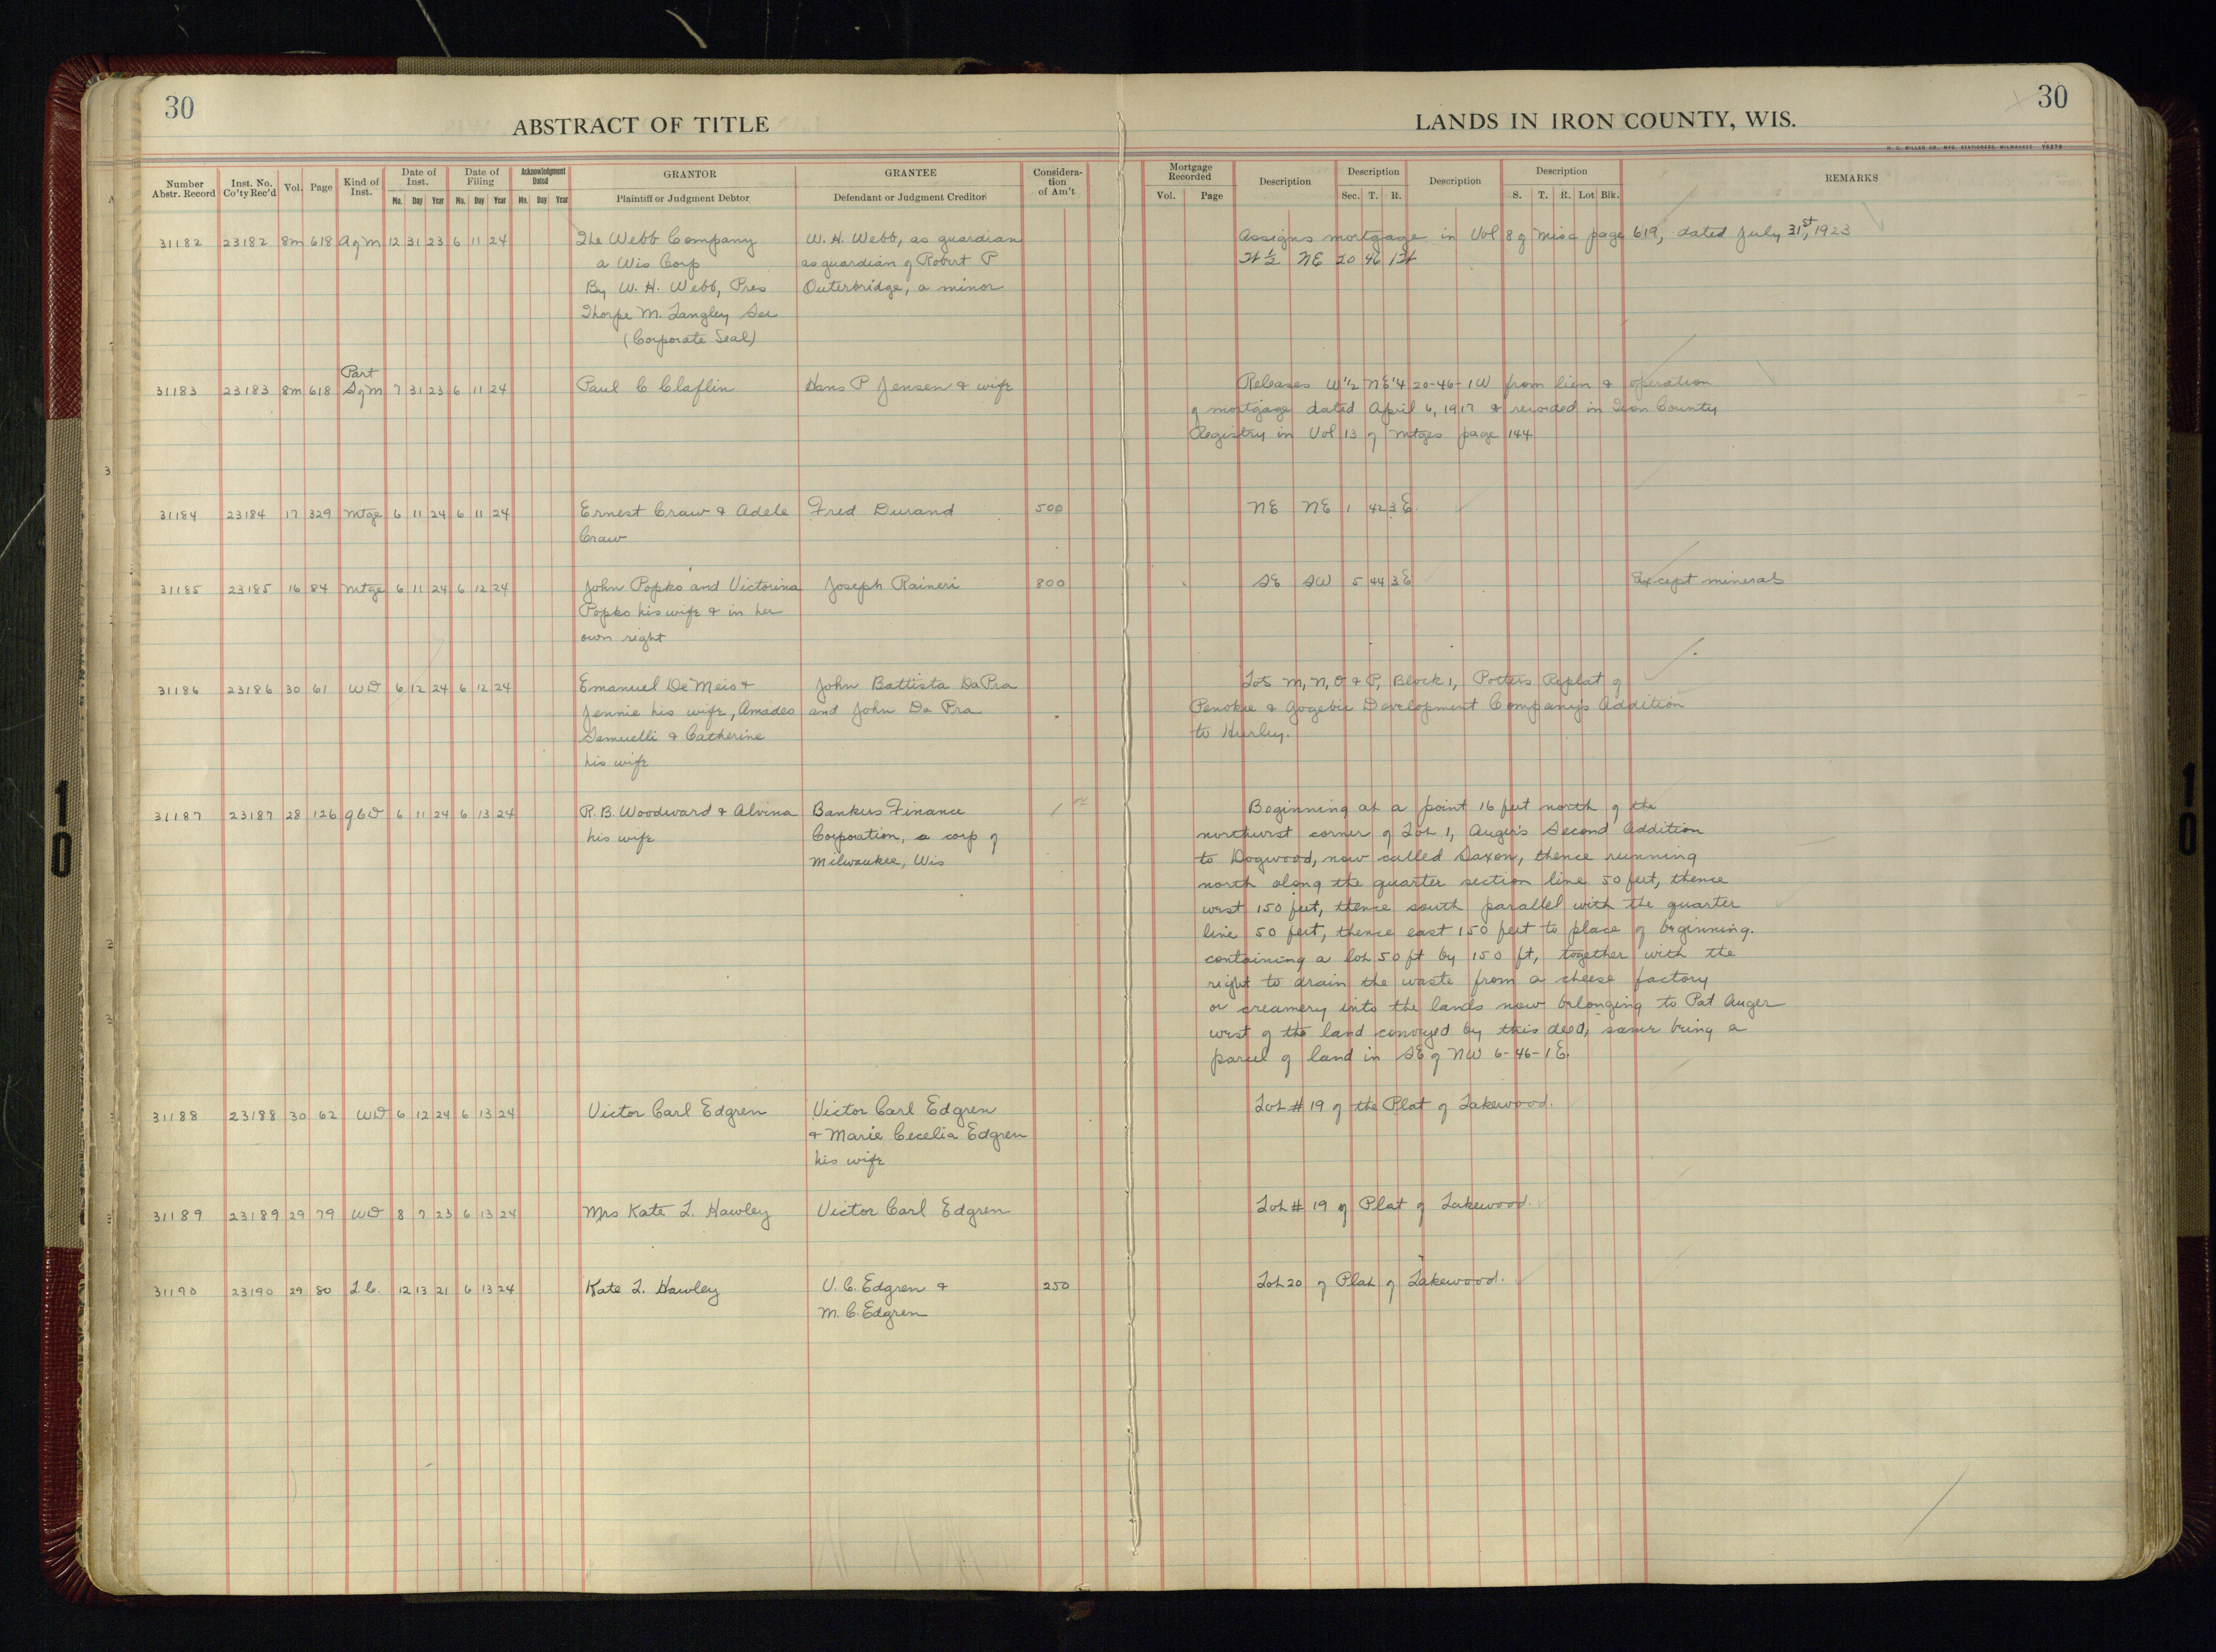 30
30
ABSTRACT OF TITLE
LANDS IN IRON COUNTY, WIS.
H. C. MILLER CO., MFG. STATIONERS, MILWAUKEE
Number Abstr. Record | Inst. No. Co'ty Rec'd | Vol. | Page | Kind of Inst. | Date of Inst. | Date of Filing | Acknowledgment Dated | GRANTOR | GRANTEE | Consideration of Am't | Mortgage Recorded | Description | Description | Description | Description | REMARKS
Mo. Day Year | Mo. Day Year | Mo. Day Year | Plaintiff or Judgment Debtor | Defendant or Judgment Creditor | Vol. | Page | Sec. T. R. | S. T. R. Lot Blk.
31182 23182 8m 618 A of M 12 31 23 6 11 24 The Webb Company W. H. Webb, as guardian Assigns mortgage in Vol 8 of Misc page 619, dated July 31st, 1923
a Wis Corp as guardian of Robert P W ½ NE 20 46 1W
By W. H. Webb, Pres Outerbridge, a minor
Thorpe M. Langley Sec
(Corporate Seal)
Part
31183 23183 8m 618 S of M 7 31 23 6 11 24 Paul C Claflin Hans P Jensen & wife Releases W½ NE¼ 20-46-1W from lien & operation
of mortgage dated April 6, 1917 & recorded in Iron County
Registry in Vol 13 of Mtges page 144
31184 23184 17 329 Mtge 6 11 24 6 11 24 Ernest Craw & Adele Fred Durand 500 NE NE 1 42 3E
Craw
31185 23185 16 84 Mtge 6 11 24 6 12 24 John Popko and Victorina Joseph Raineri 800 SE SW 5 44 3E Except minerals
Popko his wife & in her
own right
31186 23186 30 61 WD 6 12 24 6 12 24 Emanuel De Meis & John Battista DaPra Lots M, N, O & P, Block 1, Potters Replat of
Jennie his wife, Amadeo and John Da Pra Penokee & Gogebic Development Company's Addition
Samuelli & Catherine to Hurley.
his wife
31187 23187 28 126 QCD 6 11 24 6 13 24 R. B. Woodward & Alvina Bankers Finance 1 Beginning at a point 16 feet north of the
his wife Corporation, a corp of northwest corner of Lot 1, Auger's Second Addition
Milwaukee, Wis to Dogwood, now called Saxon, thence running
north along the quarter section line 50 feet, thence
west 150 feet, thence south parallel with the quarter
line 50 feet, thence east 150 feet to place of beginning.
containing a lot 50 ft by 150 ft, together with the
right to drain the waste from a cheese factory
or creamery into the lands now belonging to Pat Auger
west of the land conveyed by this deed, same being a
parcel of land in SE of NW 6-46-1E.
31188 23188 30 62 WD 6 12 24 6 13 24 Victor Carl Edgren Victor Carl Edgren Lot # 19 of the Plat of Lakewood.
& Marie Cecelia Edgren
his wife
31189 23189 29 79 WD 8 7 23 6 13 24 Mrs Kate L. Hawley Victor Carl Edgren Lot # 19 of Plat of Lakewood.
31190 23190 29 80 L.C. 12 13 21 6 13 24 Kate L. Hawley V. C. Edgren & 250 Lot 20 of Plat of Lakewood.
M. C. Edgren
10
10